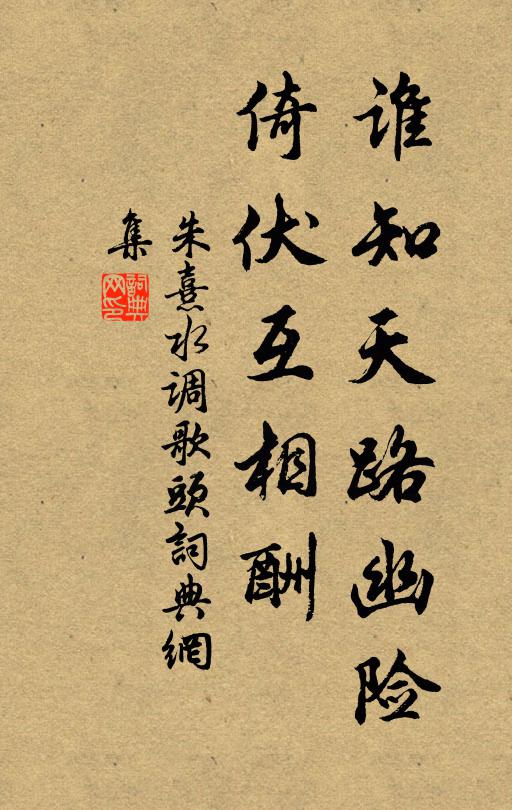 谁知天路幽险
倚伏互相酬
朱熹水调歌头詞典網
集
詞典
网印